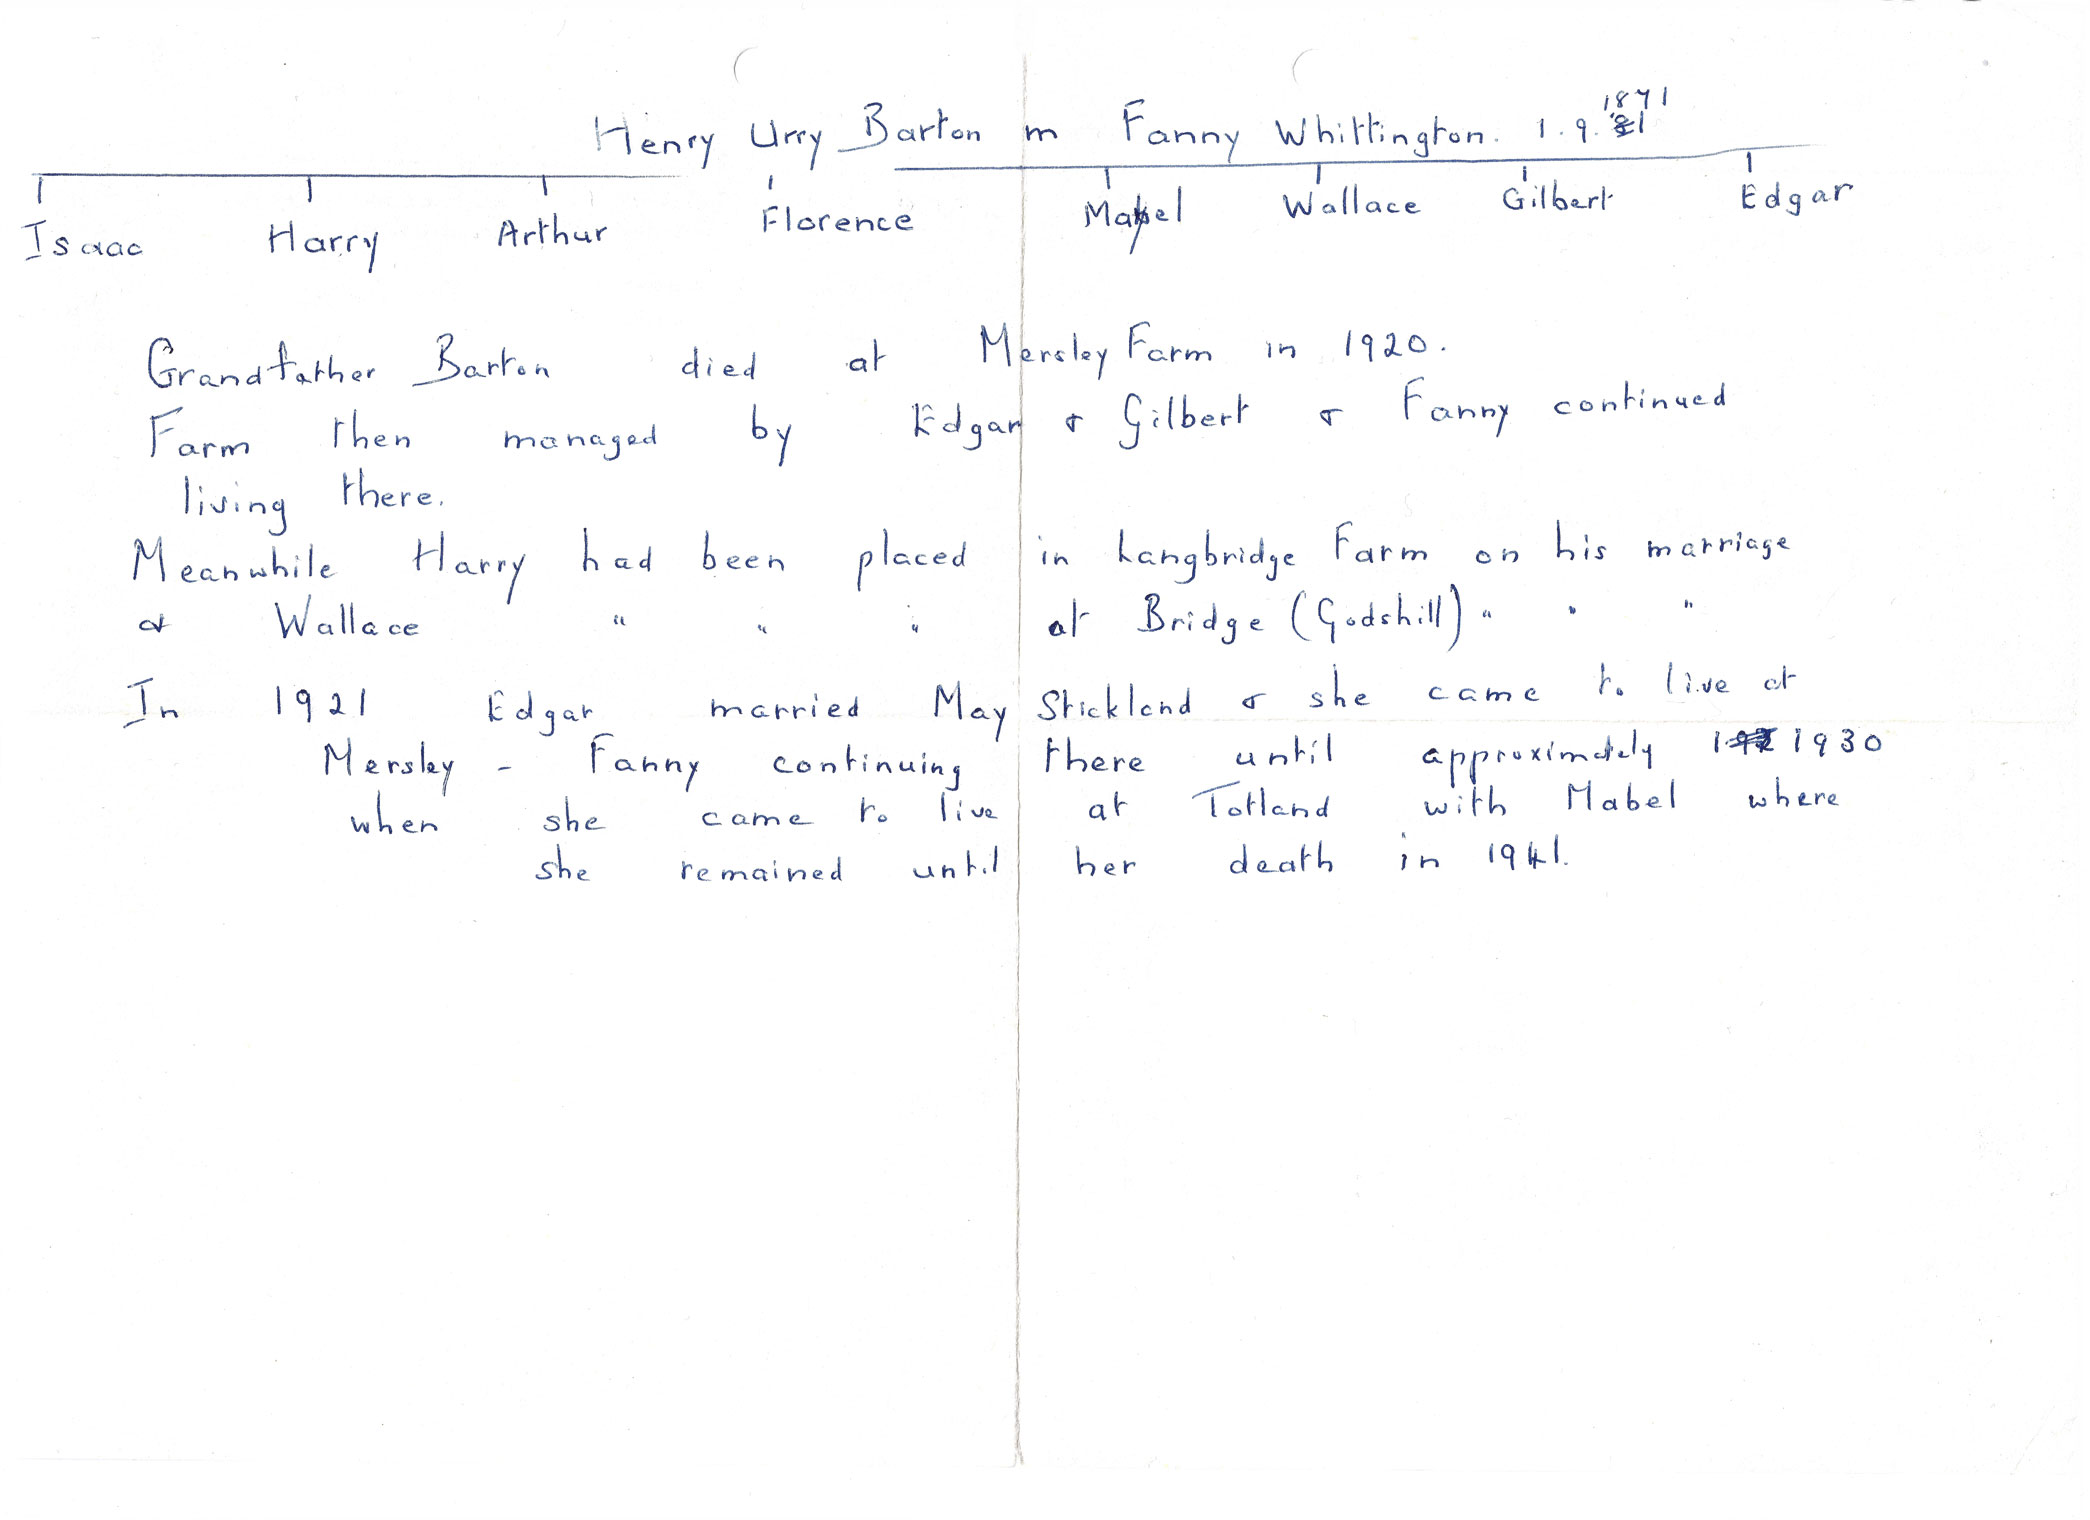 Henry Urry Barton m Fanny Whittington. 1.9. 1871
Isaac Harry Arthur Florence Mabel Wallace Gilbert Edgar
Grandfather Barton died at Mersley Farm in 1920.
Farm then managed by Edgar & Gilbert & Fanny continued
living there.
Meanwhile Harry had been placed in Langbridge Farm on his marriage
& Wallace " " " at Bridge (Godshill) " " "
In 1921 Edgar married May Stickland & she came to live at
Mersley - Fanny continuing there until approximately 1930
when she came to live at Totland with Mabel where
she remained until her death in 1941.